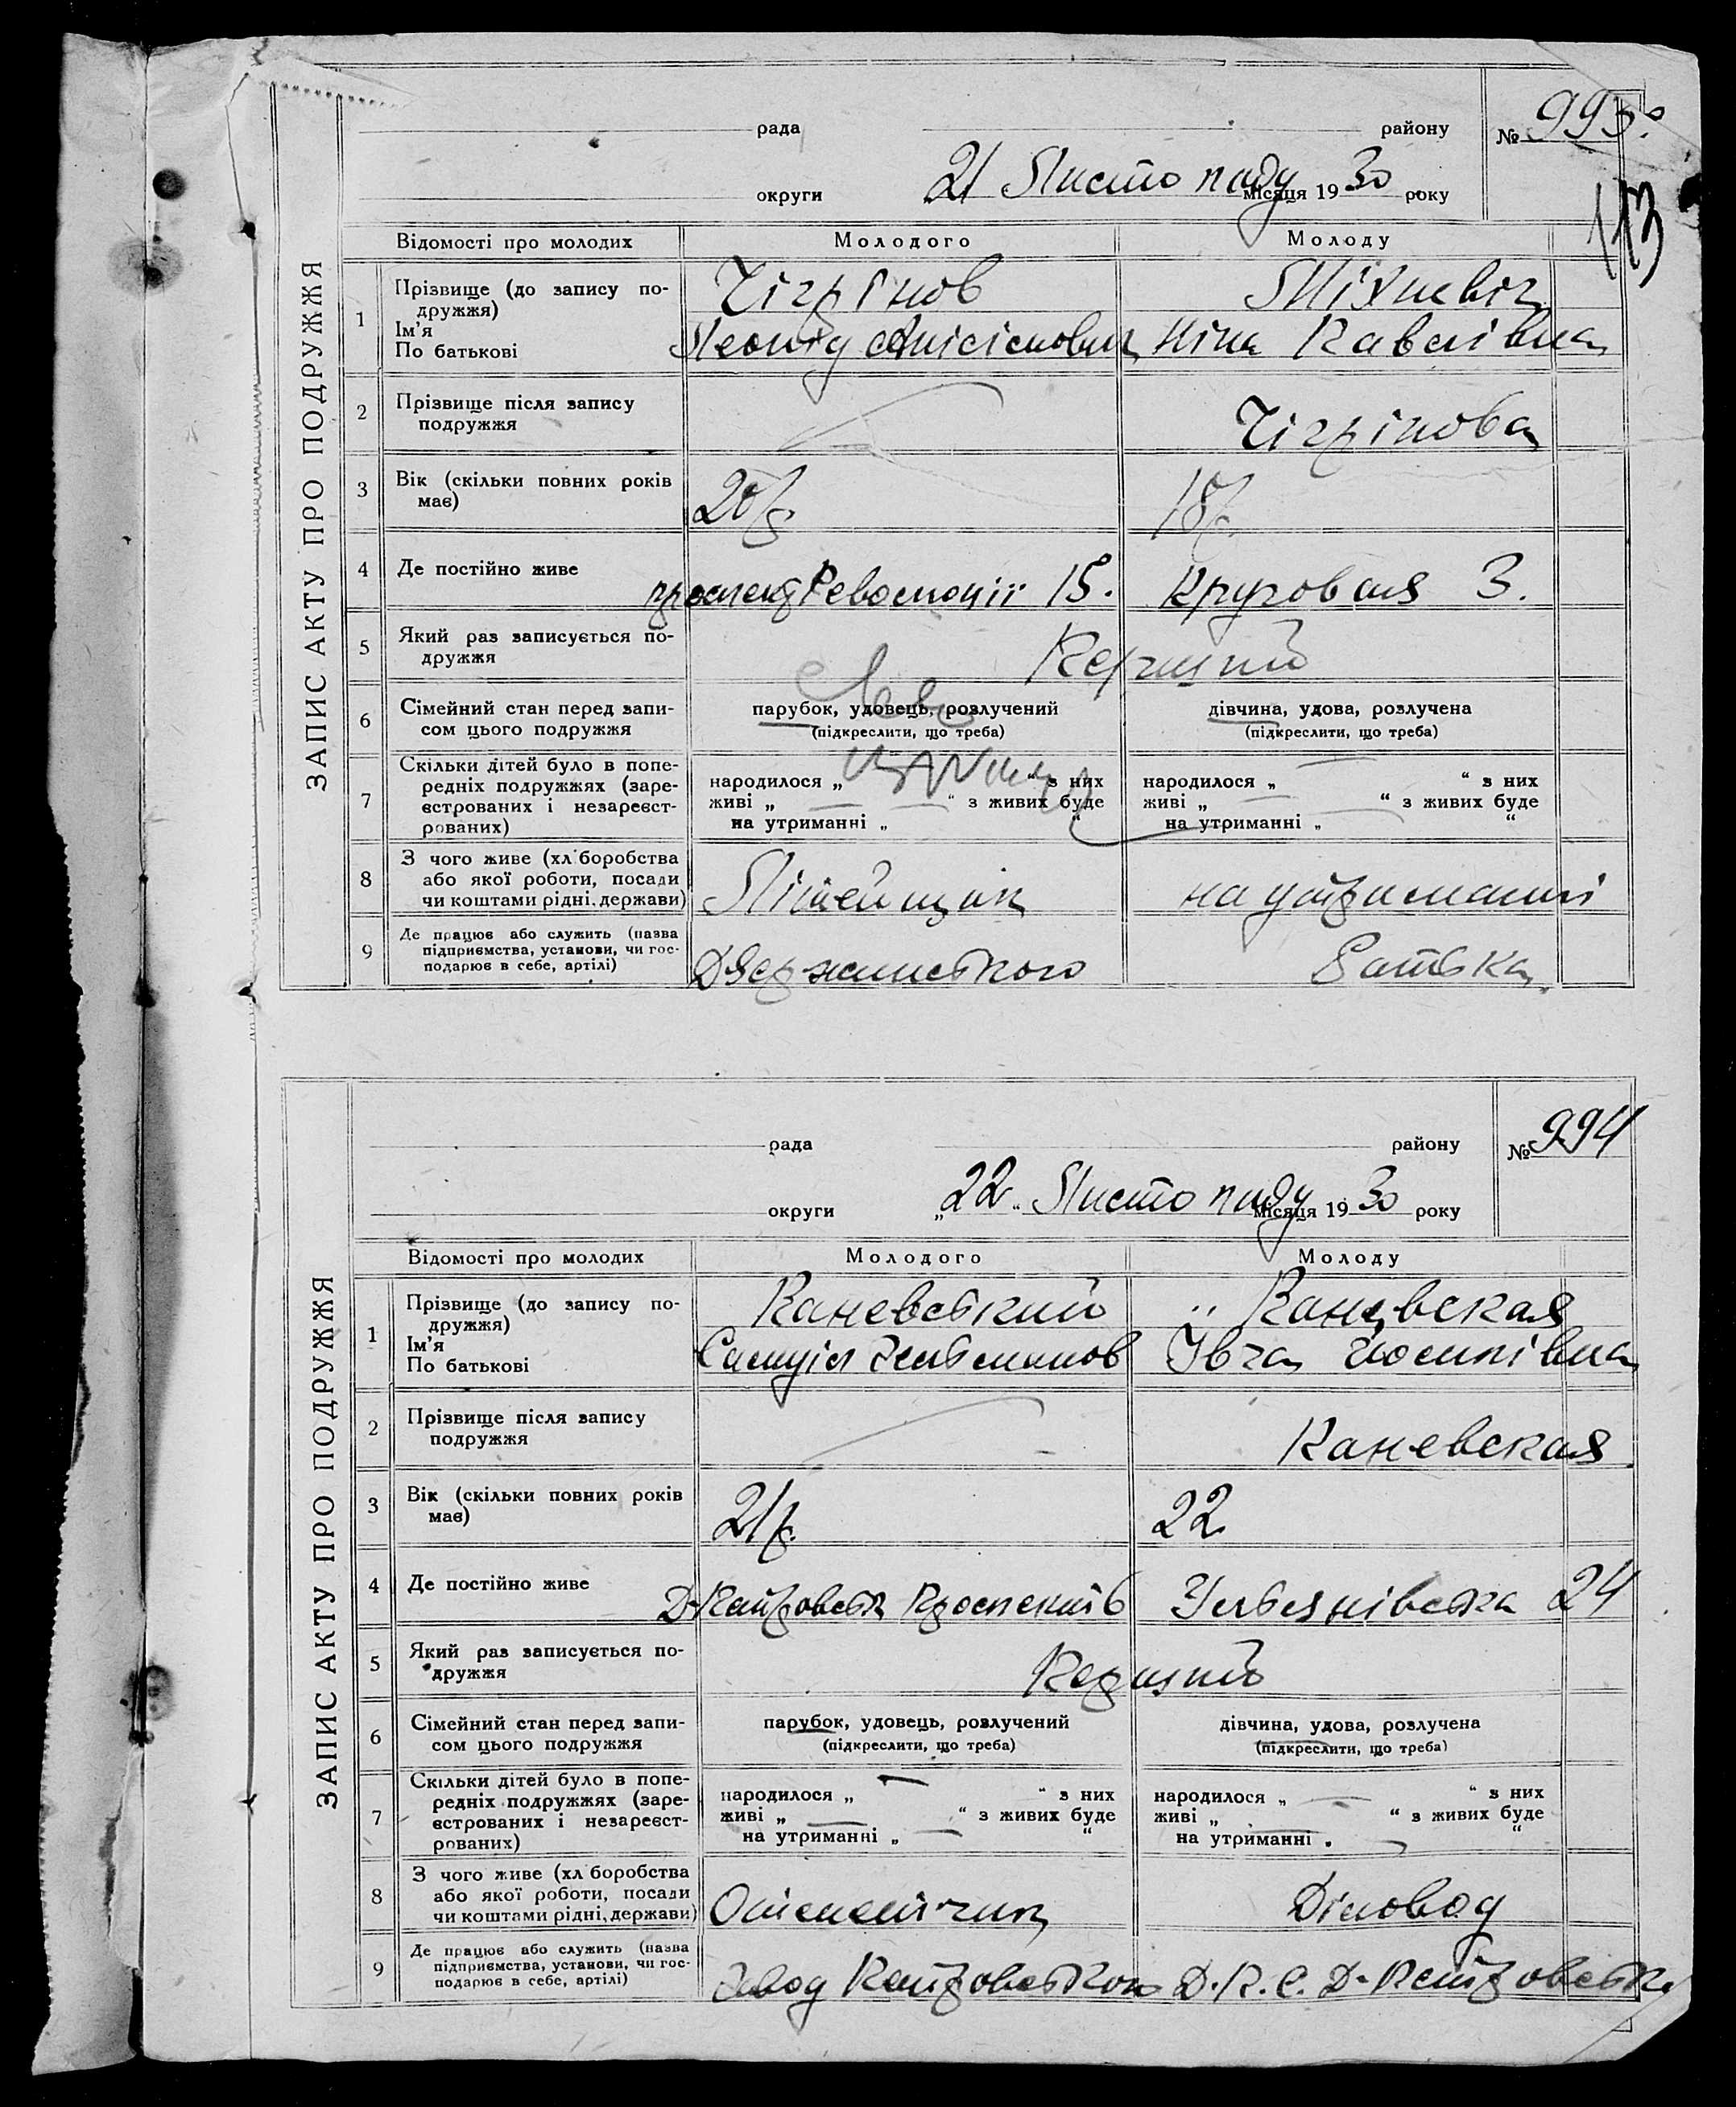 ЗАПИС АКТУ ПРО ПОДРУЖЖЯ
рада району № 993.
округи „21 Листопаду місяця 1930 року
113
Відомості про молодих Молодого Молоду
1 Прізвище (до запису подружжя) Чігрінов Міхневіч
Ім'я По батькові Леонід Анісімович Ніна Павлівна
2 Прізвище після запису подружжя Чігрінова
3 Вік (скільки повних років має) 20 р. 18 р.
4 Де постійно живе проспект Революціїї 15. Круговая 3.
5 Який раз записується подружжя Перший
6 Сімейний стан перед записом цього подружжя парубок, удовець, розлучений дівчина, удова, розлучена
(підкреслити, що треба) (підкреслити, що треба)
7 Скільки дітей було в попередніх подружжях (зареєстрованих і незареєстрованих)
народилося „ “ з них народилося „ “ з них
живі „ “ з живих буде живі „ “ з живих буде
на утриманні „ “ на утриманні „ “
8 З чого живе (хліборобства або якої роботи, посади чи коштами рідні, держави) Літейщик на утриманні
9 Де працює або служить (назва підприємства, установи, чи господарює в себе, артілі) Дзержинського Батька.
ЗАПИС АКТУ ПРО ПОДРУЖЖЯ
рада району № 994
округи „22“ Листопаду місяця 1930 року
Відомості про молодих Молодого Молоду
1 Прізвище (до запису подружжя) Каневський Каневская
Ім'я По батькові Самуіл Зельманов Йосипівна
2 Прізвище після запису подружжя Каневская
3 Вік (скільки повних років має) 21 р. 22
4 Де постійно живе Д-Петровськ Проспект 6 24
5 Який раз записується подружжя Перший
6 Сімейний стан перед записом цього подружжя парубок, удовець, розлучений дівчина, удова, розлучена
(підкреслити, що треба) (підкреслити, що треба)
7 Скільки дітей було в попередніх подружжях (зареєстрованих і незареєстрованих)
народилося „ “ з них народилося „ “ з них
живі „ “ з живих буде живі „ “ з живих буде
на утриманні „ “ на утриманні „ “
8 З чого живе (хліборобства або якої роботи, посади чи коштами рідні, держави) Діловод
9 Де працює або служить (назва підприємства, установи, чи господарює в себе, артілі) завод Петровського Д.К.С. Д-Петровськ